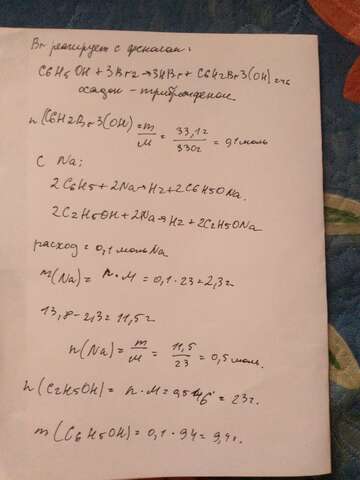 Br реагирует с фенолом:
C6H5OH + 3Br2 → 3HBr + C6H2Br3(OH)
осадок - трибромфенол
n(C6H2Br3(OH) = m/M = 33,12/330г = 0,1 моль
С Na:
2C6H5 + 2Na → H2 + 2C6H5ONa
2C2H5OH + 2Na → H2 + 2C2H5ONa
расход = 0,1 моль Na
m(Na) = n·M = 0,1·23 = 2,3г
13,8 - 2,3 = 11,5г
n(Na) = m/M = 11,5/23 = 0,5 моль.
n(C2H5OH) = n·M = 0,5·46 = 23г.
m(C6H5OH) = 0,1·94 = 9,4г.